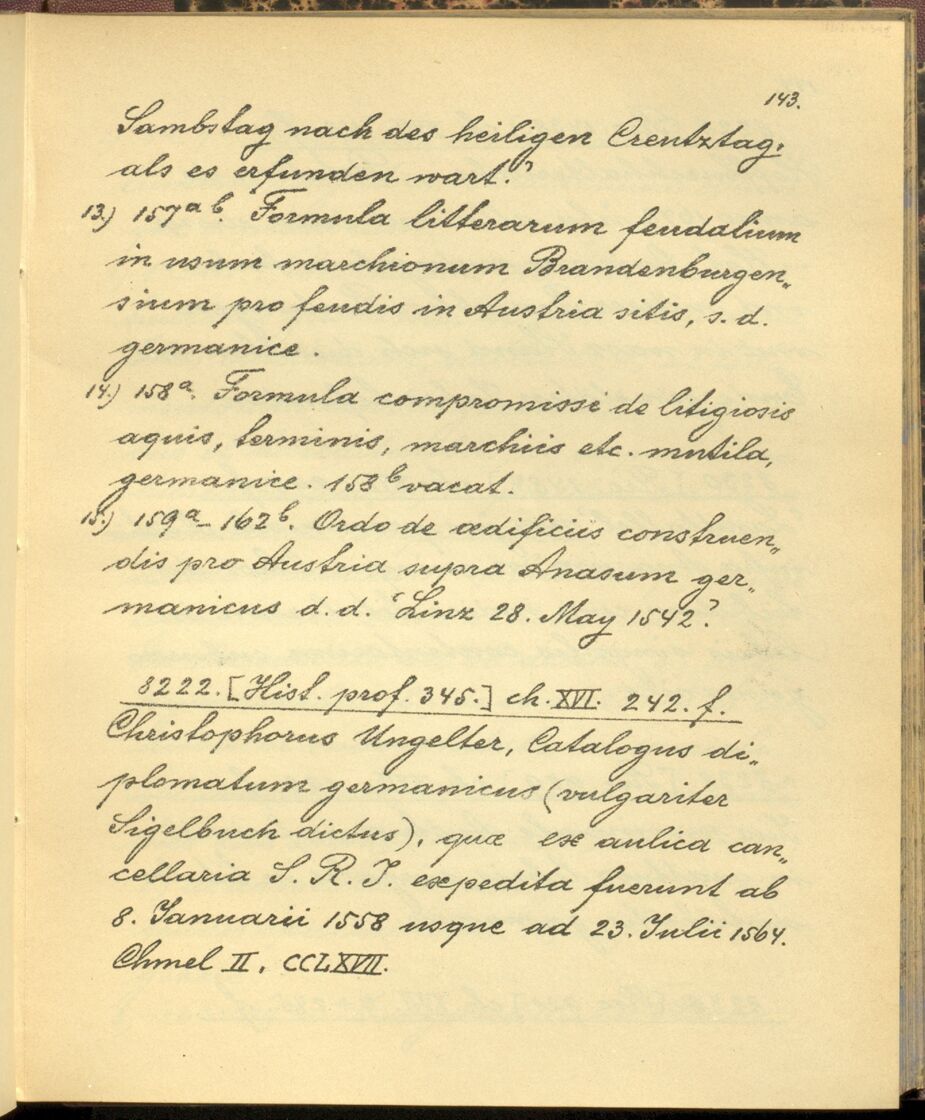 143.
Sambstag nach des heiligen Creutztag,
als es erfunden wart.'
13.) 157a b. Formula litterarum feudalium
in usum marchionum Brandenburgen„
sium pro feudis in Austria sitis, s. d.
germanice.
14.) 158a. Formula compromissi de litigiosis
aquis, terminis, marchiis etc. mutila,
germanice. 158b vacat.
15.) 159a–162b. Ordo de ædificiis construen„
dis pro Austria supra Anasum ger„
manicus d. d. 'Linz 28. May 1542'.
8222. [Hist. prof. 345.] ch. XVI. 242. f.
Christophorus Ungelter, Catalogus di„
plomatum germanicus (vulgariter
Sigelbuch dictus), quæ ex aulica can„
cellaria S. R. I. expedita fuerunt ab
8. Ianuarii 1558 usque ad 23. Iulii 1564.
Chmel II, CCLXVII.